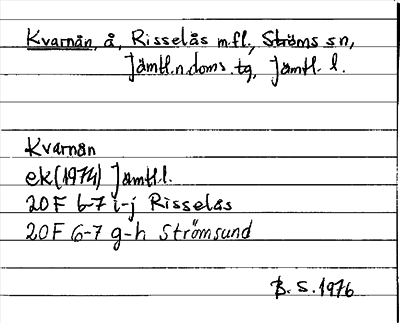 Kvarnån, å, Risselås m.fl., Ströms sn,
Jämtl.n.doms.tg, Jämtl. l.
Kvarnån
ek(1974) Jämtl.l.
20F 6-7 i-j Risselås
20F 6-7 g-h Strömsund
B. S. 1976